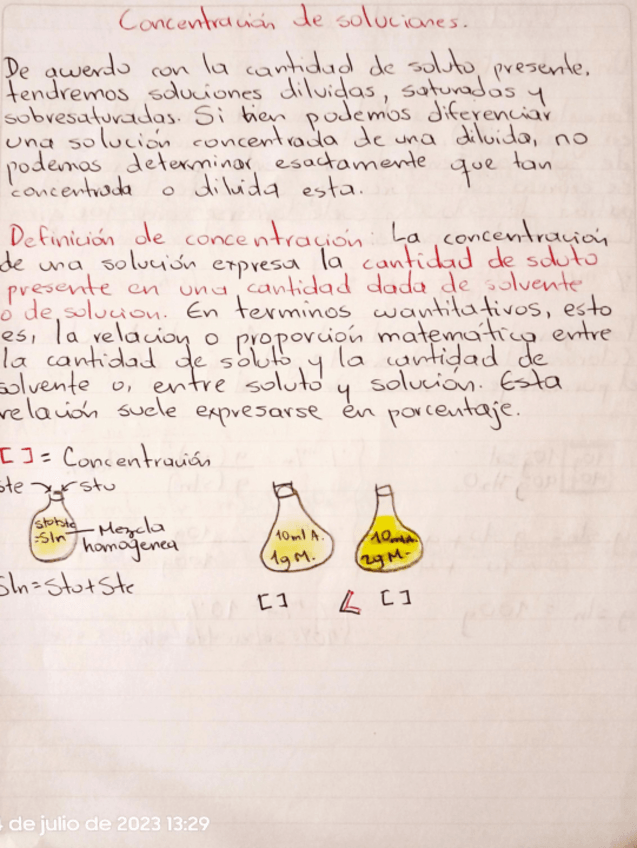 Concentración de soluciones.
De acuerdo con la cantidad de soluto presente,
tendremos soluciones diluidas, saturadas y
sobresaturadas. Si bien podemos diferenciar
una solución concentrada de una diluida, no
podemos determinar esactamente que tan
concentrada o diluida esta.
Definición de concentración: La concentración
de una solución expresa la cantidad de soluto
presente en una cantidad dada de solvente
o de solucion. En terminos cuantitativos, esto
es, la relacion o proporción matemática entre
la cantidad de soluto y la cantidad de
solvente o, entre soluto y solución. Esta
relación suele expresarse en porcentaje.
[ ] = Concentración
ste stu
=Sln
Mezcla
homogenea
Sln=Sto+Ste
10ml A.
1g M.
2g M.
[ ] < [ ]
de julio de 2023 13:29